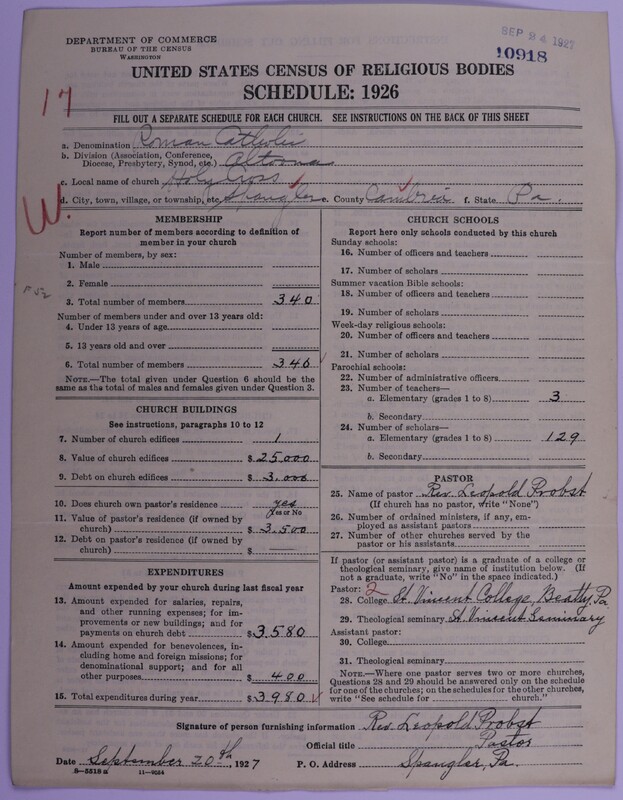 DEPARTMENT OF COMMERCE
BUREAU OF THE CENSUS
WASHINGTON
SEP 24 1927
10918
UNITED STATES CENSUS OF RELIGIOUS BODIES
SCHEDULE: 1926
17
FILL OUT A SEPARATE SCHEDULE FOR EACH CHURCH. SEE INSTRUCTIONS ON THE BACK OF THIS SHEET
a. Denomination Roman Catholic
b. Division (Association, Conference,
Diocese, Presbytery, Synod, etc.) Altoona
c. Local name of church Holy Cross
d. City, town, village, or township, etc. Spangler e. County Cambria f. State Pa.
W.
MEMBERSHIP
Report number of members according to definition of
member in your church
Number of members, by sex:
1. Male
2. Female
3. Total number of members 340
Number of members under and over 13 years old:
4. Under 13 years of age
5. 13 years old and over
6. Total number of members 340
NOTE.—The total given under Question 6 should be
the same as the total of males and females given under Question 3.
CHURCH BUILDINGS
See instructions, paragraphs 10 to 12
7. Number of church edifices 1
8. Value of church edifices $ 25000
9. Debt on church edifices $ 3,000
10. Does church own pastor's residence yes
Yes or No
11. Value of pastor's residence (if owned by
church) $ 3,500
12. Debt on pastor's residence (if owned by
church) $ —
EXPENDITURES
Amount expended by your church during last fiscal year
13. Amount expended for salaries, repairs,
and other running expenses; for im-
provements or new buildings; and for
payments on church debt $ 3580
14. Amount expended for benevolences, in-
cluding home and foreign missions; for
denominational support; and for all
other purposes $ 400
15. Total expenditures during year $ 3980
CHURCH SCHOOLS
Report here only schools conducted by this church
Sunday schools:
16. Number of officers and teachers
17. Number of scholars
Summer vacation Bible schools:
18. Number of officers and teachers
19. Number of scholars
Week-day religious schools:
20. Number of officers and teachers
21. Number of scholars
Parochial schools:
22. Number of administrative officers
23. Number of teachers—
a. Elementary (grades 1 to 8) 3
b. Secondary
24. Number of scholars—
a. Elementary (grades 1 to 8) 129
b. Secondary
PASTOR
25. Name of pastor Rev. Leopold Probst
(If church has no pastor, write "None")
26. Number of ordained ministers, if any, em-
ployed as assistant pastors
27. Number of other churches served by the
pastor or his assistants
If pastor (or assistant pastor) is a graduate of a college or
theological seminary, give name of institution below. (If
not a graduate, write "No" in the space indicated.)
Pastor: 2
28. College St. Vincent College, Beatty, Pa
29. Theological seminary St. Vincent Seminary
Assistant pastor:
30. College
31. Theological seminary
NOTE.—Where one pastor serves two or more churches,
Questions 28 and 29 should be answered only on the schedule
for one of the churches; on the schedules for the other churches,
write "See schedule for church."
Signature of person furnishing information Rev. Leopold Probst
Official title Pastor
Date September 20th, 1927 P. O. Address Spangler, Pa.
8—5518a 11—9024